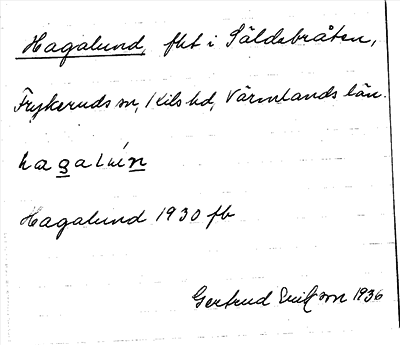 Hagalund, fht i Säldebråten,
Frykeruds sn, Kils hd, Värmlands län.
Hagalund 1930 fb
Gertrud 1936